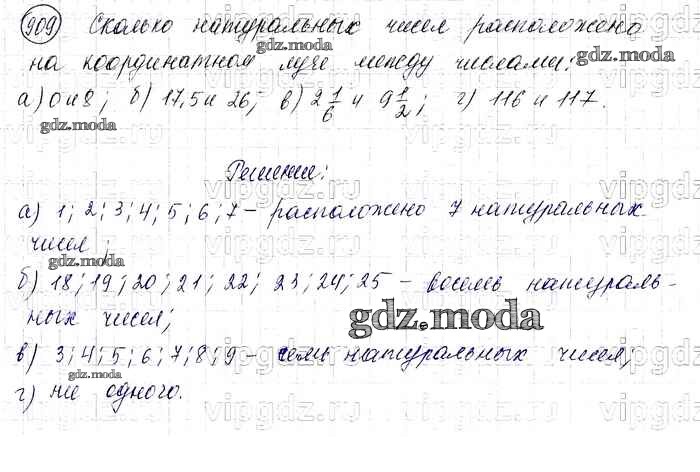 909 Сколько натуральных чисел расположено
gdz.moda
на координатном луче между числами:
а) 0 и 8; б) 17,5 и 26; в) 2 1/6 и 9 1/2; г) 116 и 117.
gdz.moda
Решение:
а) 1; 2; 3; 4; 5; 6; 7 – расположено 7 натуральных
чисел;
gdz.moda
б) 18; 19; 20; 21; 22; 23; 24; 25 – восемь натураль-
ных чисел;
gdz.moda
в) 3; 4; 5; 6; 7; 8; 9 – семь натуральных чисел;
gdz.moda
г) ни одного.
vipgdz.ru